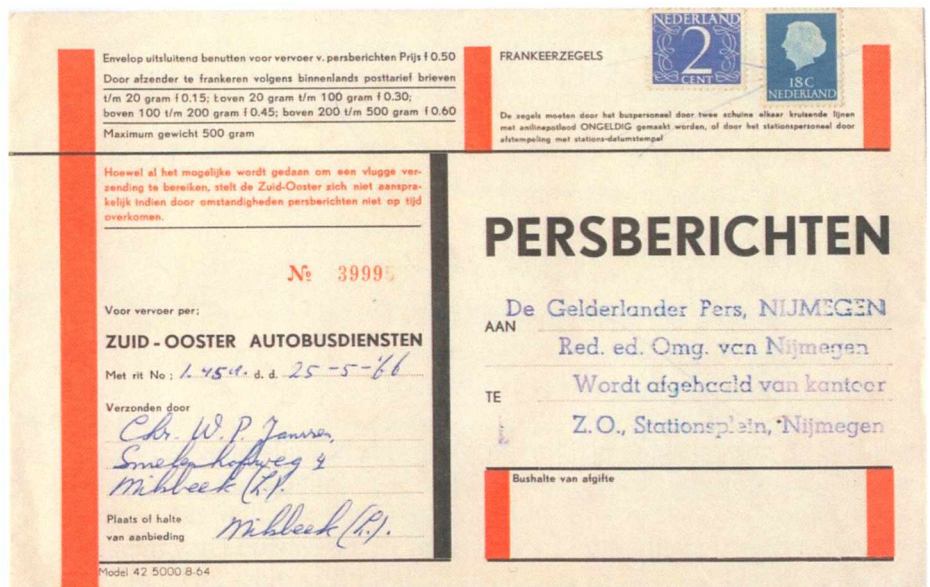 Envelop uitsluitend benutten voor vervoer v. persberichten Prijs f 0.50
Door afzender te frankeren volgens binnenlands posttarief brieven
t/m 20 gram f 0.15; boven 20 gram t/m 100 gram f 0.30;
boven 100 t/m 200 gram f 0.45; boven 200 t/m 500 gram f 0.60
Maximum gewicht 500 gram
FRANKEERZEGELS
NEDERLAND
2
CENT
18 C
NEDERLAND
De zegels moeten door het buspersoneel door twee schuine elkaar kruisende lijnen
met anilinepotlood ONGELDIG gemaakt worden, of door het stationspersoneel door
afstempeling met stations-datumstempel
Hoewel al het mogelijke wordt gedaan om een vlugge ver-
zending te bereiken, stelt de Zuid-Ooster zich niet aanspra-
kelijk indien door omstandigheden persberichten niet op tijd
overkomen.
No 39995
Voor vervoer per:
ZUID-OOSTER AUTOBUSDIENSTEN
Met rit No: 1.45u. d.d. 25-5-'66
Verzonden door
Chr. W. P. Janssen,
4
Milsbeek (L).
Plaats of halte
van aanbieding Milsbeek (L).
Model 42 5000 8-64
PERSBERICHTEN
De Gelderlander Pers, NIJMEGEN
AAN
Red. ed. Omg. van Nijmegen
TE Wordt afgehaald van kantoor
Z.O., Stationsplein, Nijmegen
Bushalte van afgifte